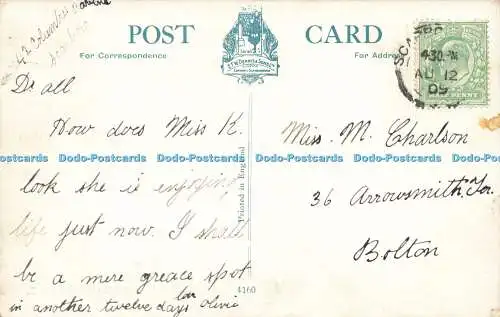 POST CARD
For Correspondence
For Address
E.T.W. DENNIS & SONS LTD
LONDON & SCARBOROUGH
SCARBO
4.30 PM
AU 12
09
HALF PENNY
Dr all
How does Miss K.
look she is enjoying
life just now. I shall
be a mere greace spot
in another twelve days
love Olivia
Printed in England
4160
Miss. M. Charlson
36 Arrowsmith Ter.
Bolton
Dodo-Postcards Dodo-Postcards Dodo-Postcards Dodo-Postcards Dodo-Postcards Dodo-Postcards